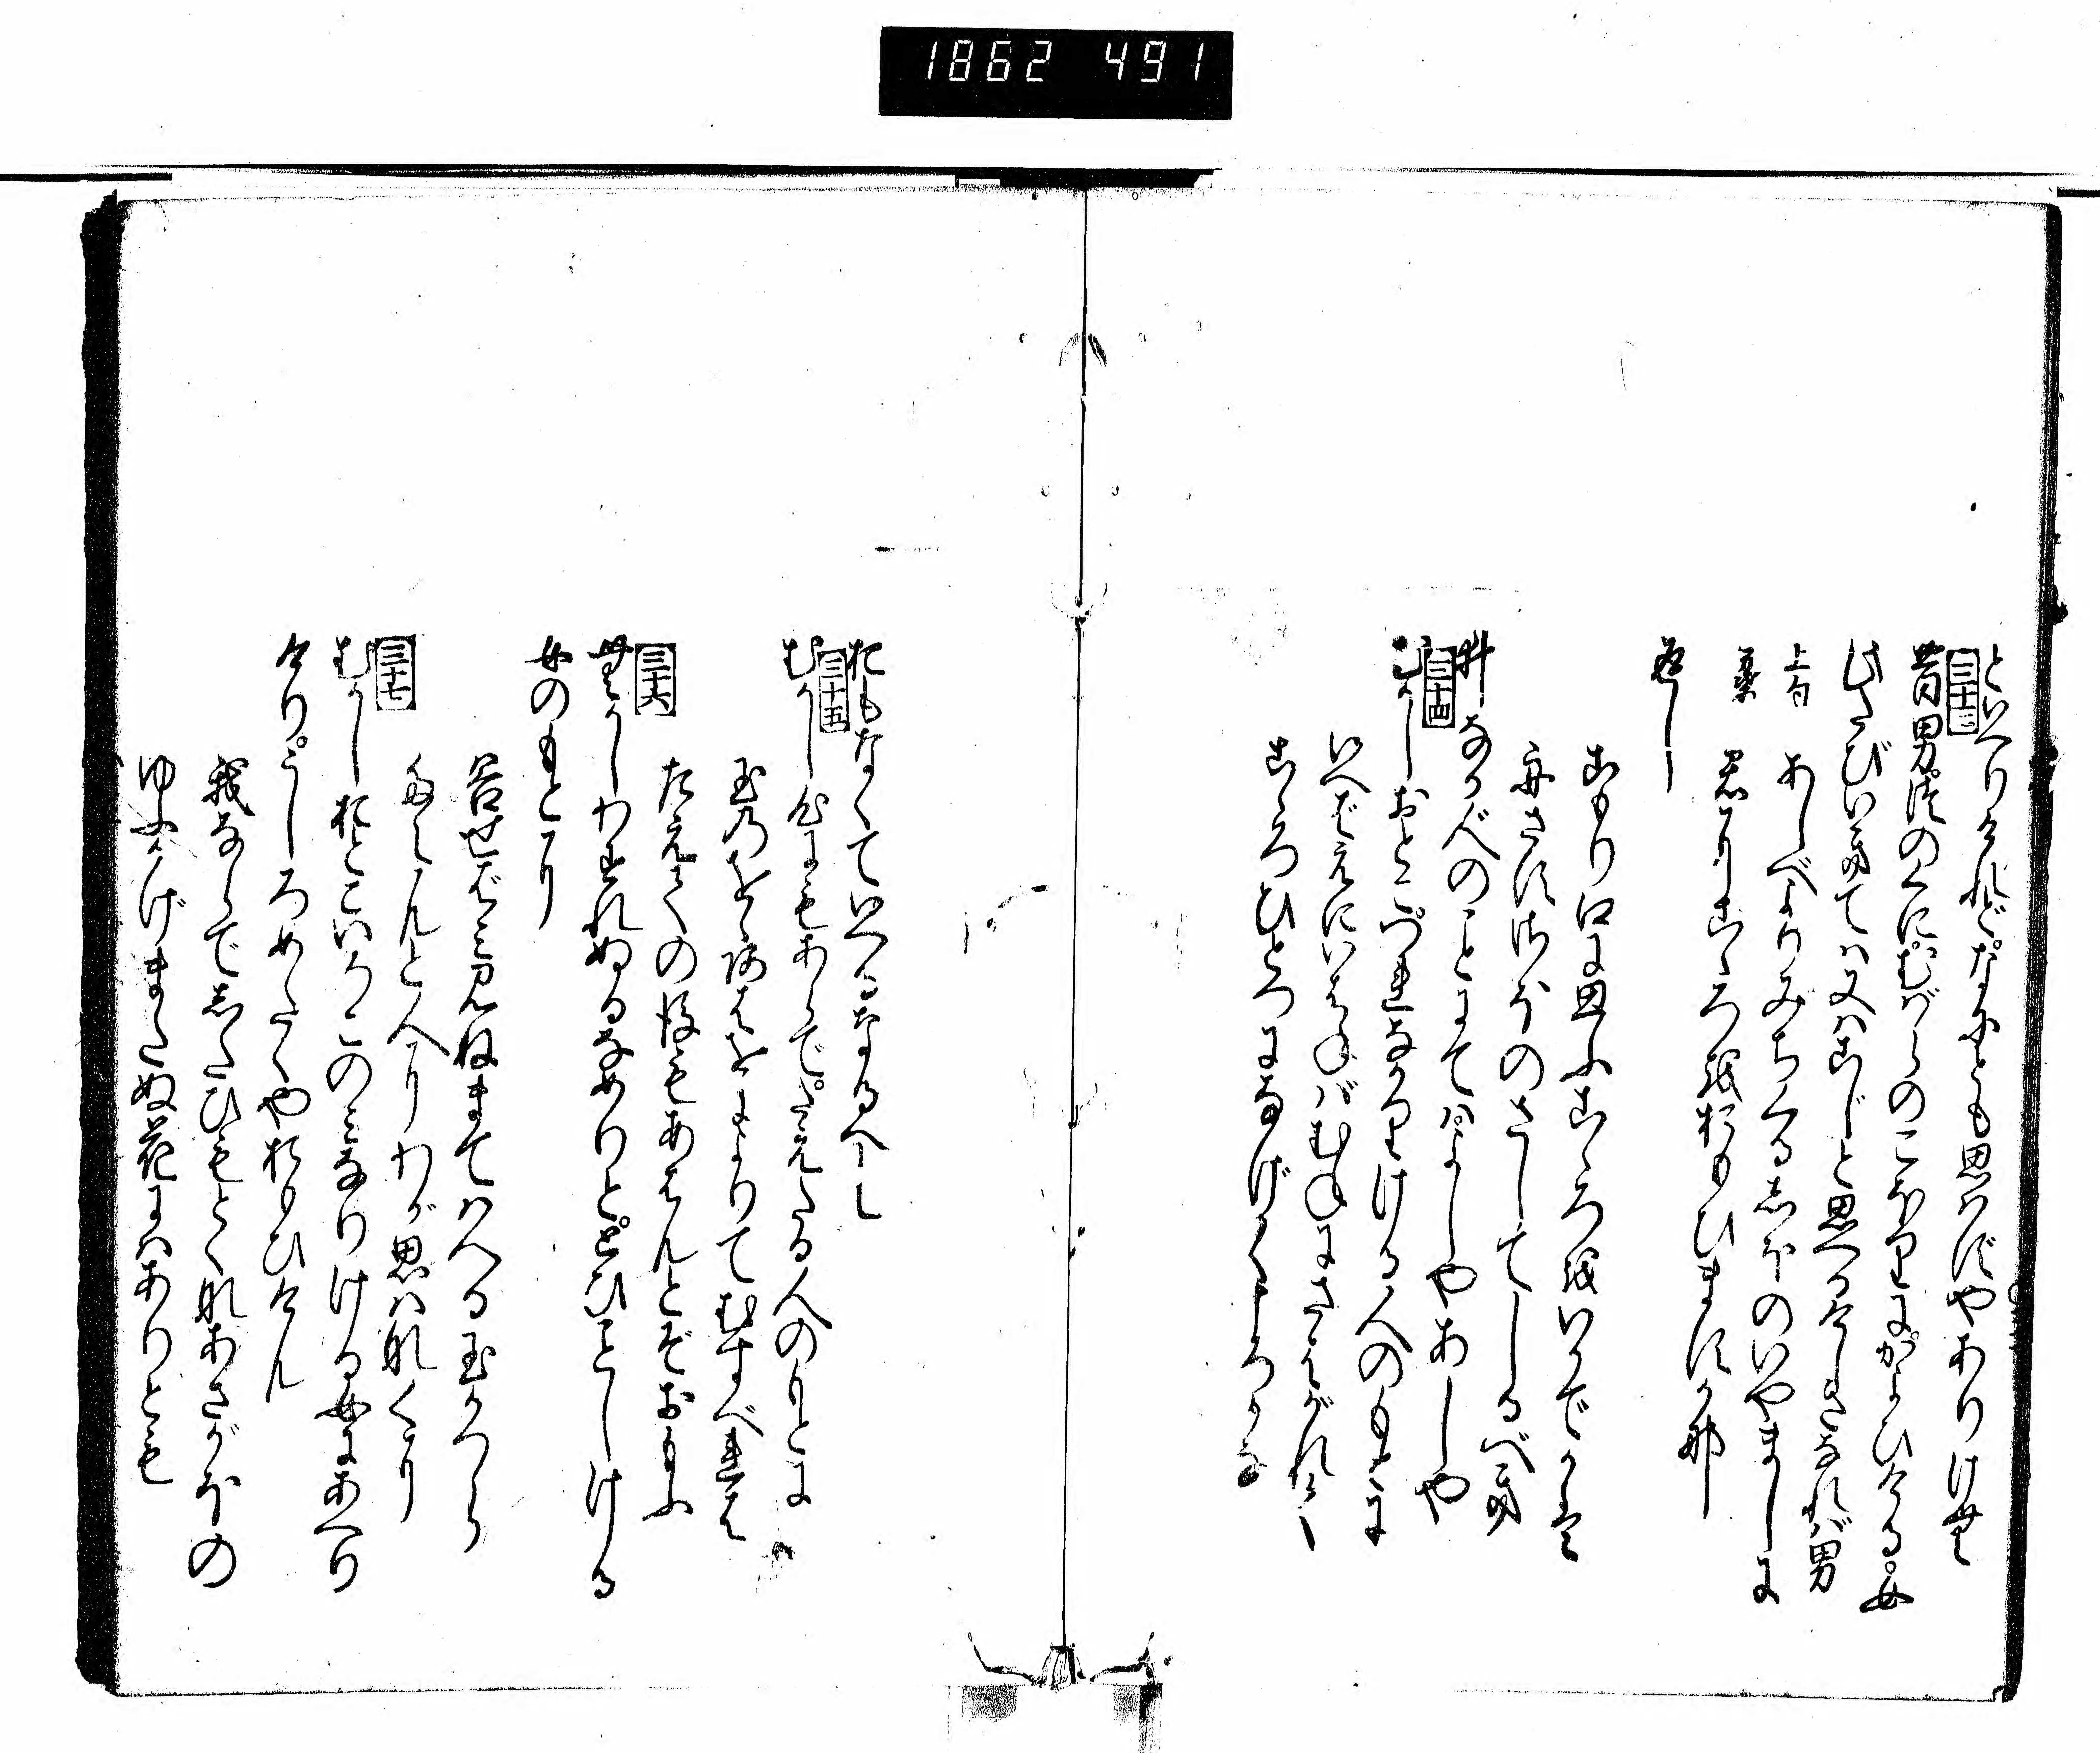 1862 491
といへりけれどなにとも思はずやありけむ
三十三
昔男津のくにむばらのこほりにかよひける女
此たびいきては又はこじと思へるけしきなれば男
上句 あしべよりみちくるしほのいやましに
君にこゝろをおもひますか那
返し
こもり江に思ふこゝろをいかでかは
舟さすさほのさしてしるべき
井なかへのことにてはよしやあしや
三十四
むかしおとこつれなかりける人のもとに
いへばえにいはねばむねにさはがれて
こゝろひとつになげくころかな
おもなくていへるなるべし
三十五
むかし心にもあらでたえたる人のもとに
玉のをゝあはをによりてむすべれば
たえての後もあはんとぞおもふ
三十六
むかしわすれぬるなめりととひことしける
女のもとに
谷せばみ見ねまてはへる玉かつら
たえんと人にわが思はなくに
三十七
むかしおとこいろこのみなりける女にあへり
けりうしろめたくやおもひけん
我ならでしたひもとくなあさがほの
ゆふかげまたぬ花にはありとも